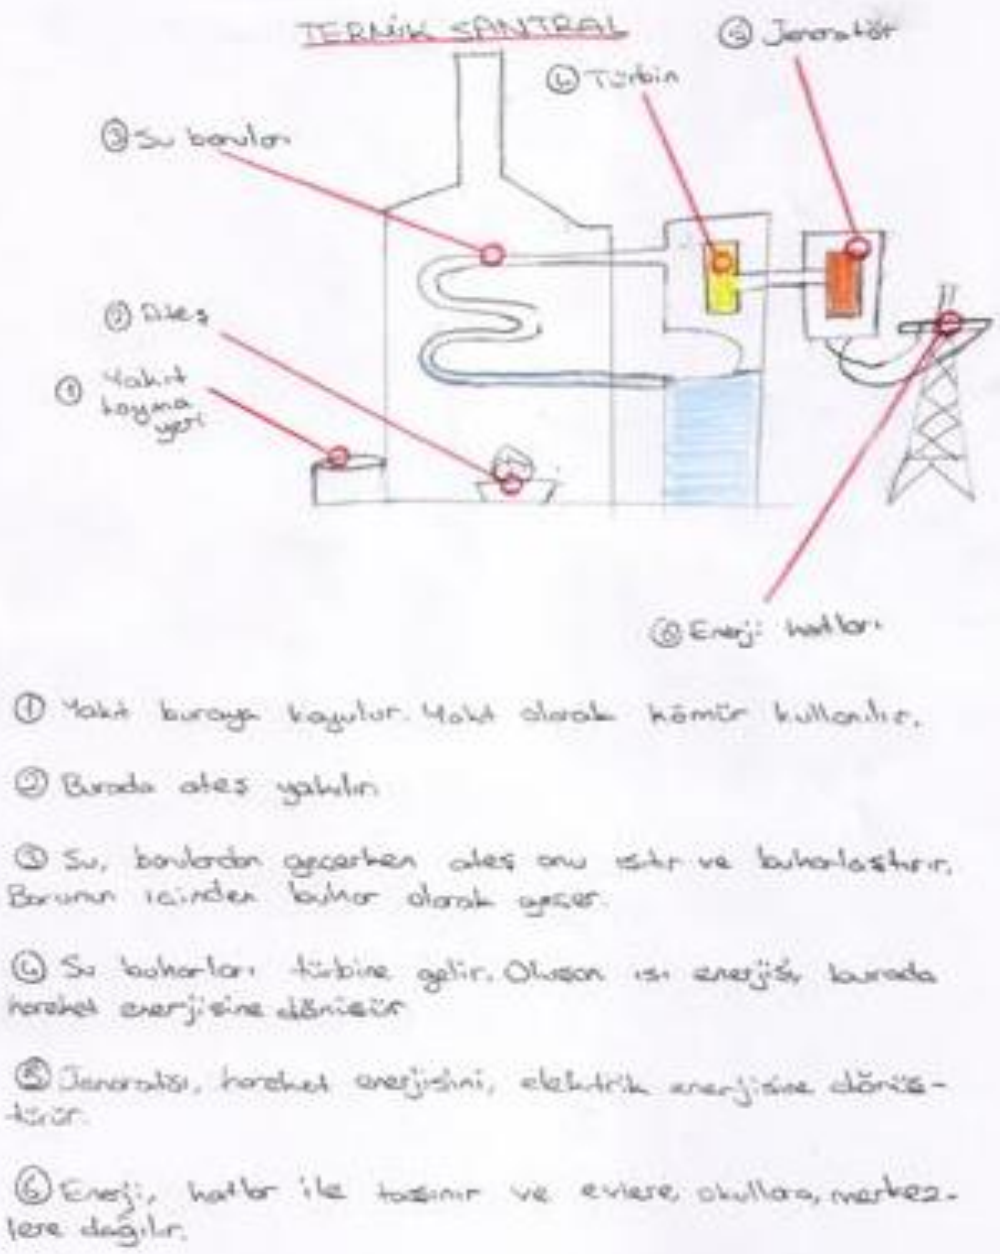 TERMİK SANTRAL
⑤ Jeneratör
④ Türbin
③ Su boruları
② Ateş
① Yakıt
koyma
yeri
⑥ Enerji hatları
① Yakıt buraya koyulur. Yakıt olarak kömür kullanılır.
② Burada ateş yakılır.
③ Su, borulardan geçerken ateş onu ısıtır ve buharlaştırır.
Borunun içinden buhar olarak geçer.
④ Su buharları türbine gelir. Oluşan ısı enerjisi burada
hareket enerjisine dönüşür
⑤ hareket enerjisini, elektrik enerjisine dönüş-
türür.
⑥ Enerji, hatlar ile taşınır ve evlere, okullara, merkez-
lere dağılır.